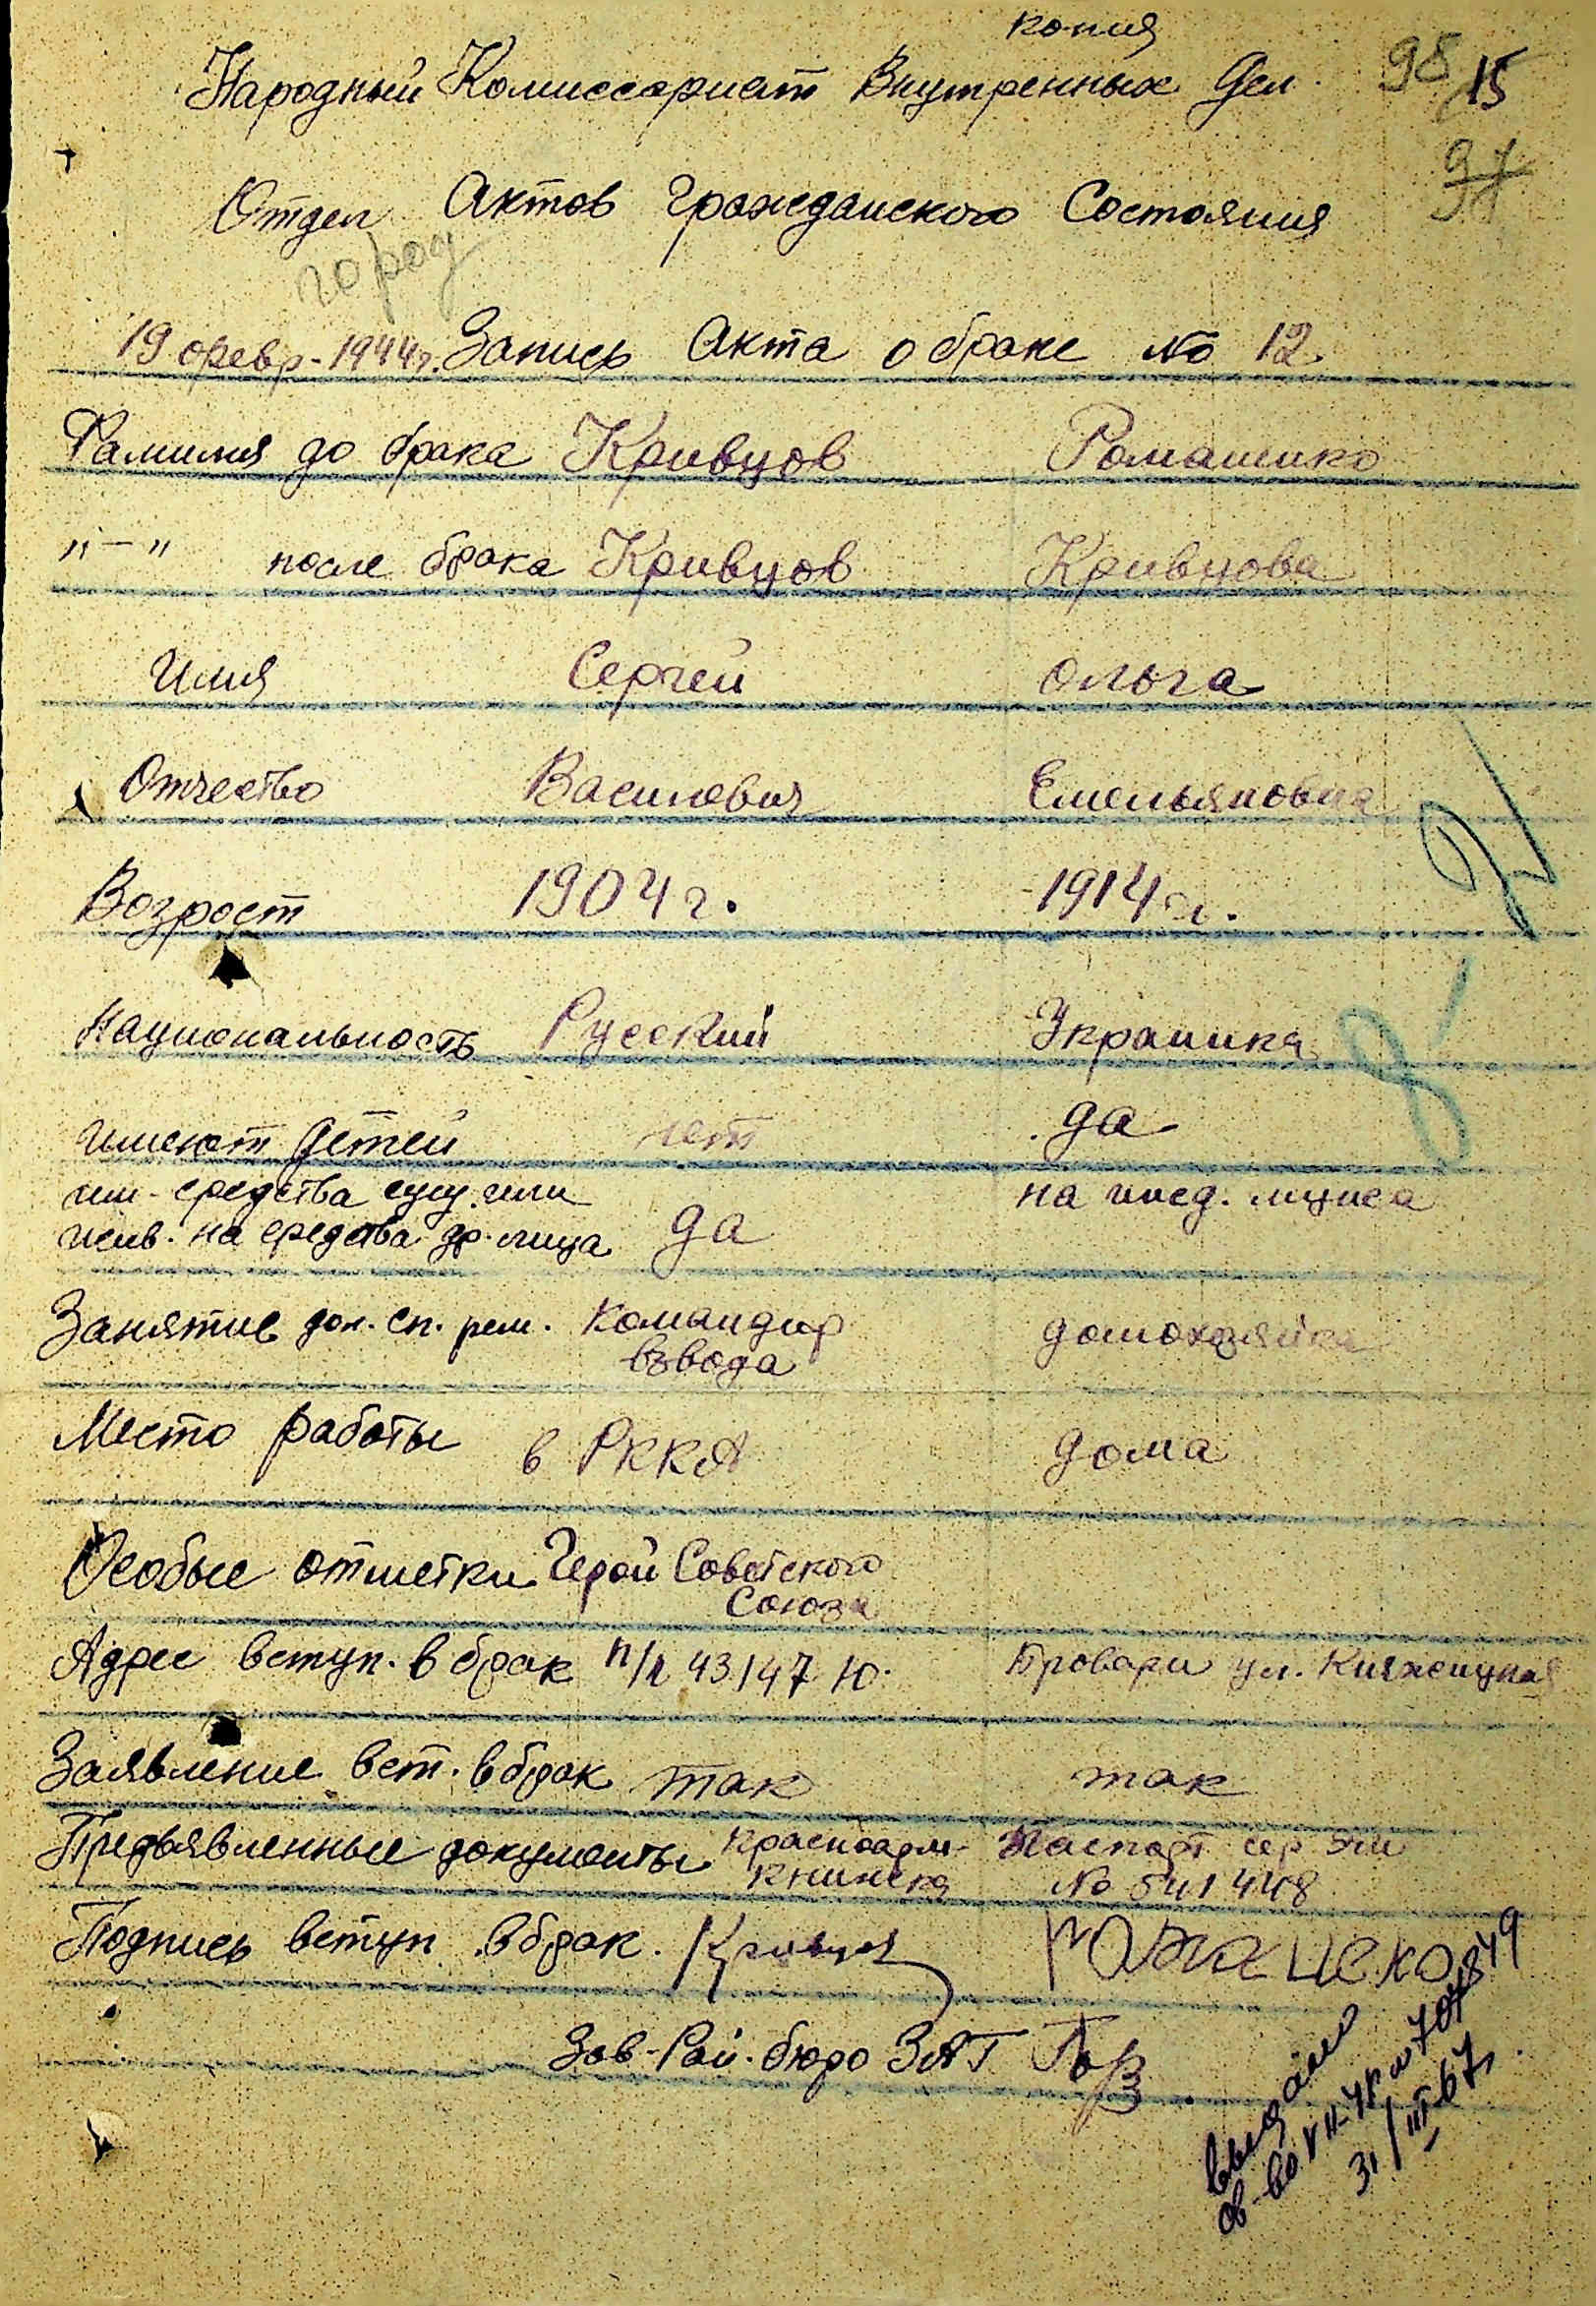 копия
Народный Комиссариат Внутренных Дел 98 15
97
Отдел Актов Гражданского Состояния
город
19 февр-1944г. Запись Акта о браке № 12
Фамилия до брака Кривцов Ромашико
"-" после брака Кривцов Кривцова
Имя Сергей Ольга
Отчество Василевич Емельяновна
Возрост 1904 г. 1914 г.
Национальность Русский Украинка
Имеют детей нет да
им. средства сущ. или на ижд. мужа
жив. на средства др. лица да
Занятие дол. сп. рем. Командир домохозяйка
взвода
Место работы в РККА дома
Особые отметки Герой Советского
Союза
Адрес вступ. в брак п/п 43147 Ю. Бровари ул. Княжицкая
Заявление вст. в брак так так
Предъявленные документы Красноарм- Паспорт сер
книжка № 541448
Подпись вступ в брак. Кривцов
Зав-Рай. бюро ЗАГ
Выдано
31/III-67г.